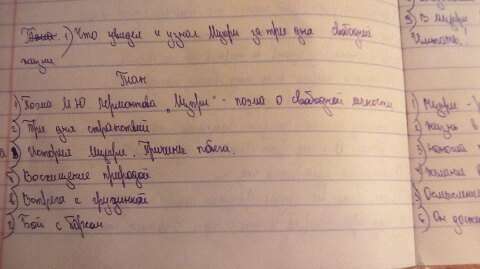 1) Что увидел и узнал Мцыри за три дня свободной
жизни
План
1) Поэма М Ю Лермонтова "Мцыри" - поэма о свободной личности
2) Три дня странствий
3) История Мцыри. Причины побега.
Восхищение природой
Встреча с грузинкой
Бой с барсом
3) В Мцыри
1) Мцыри -
2) Жизнь в
3)
4) Желание
5)
6) Он